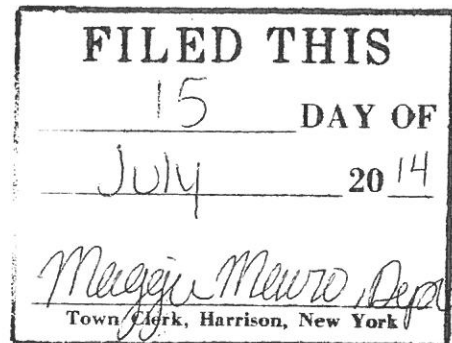 FILED THIS
15 DAY OF
July 20 14
Maggie Mauro, Dept
Town Clerk, Harrison, New York